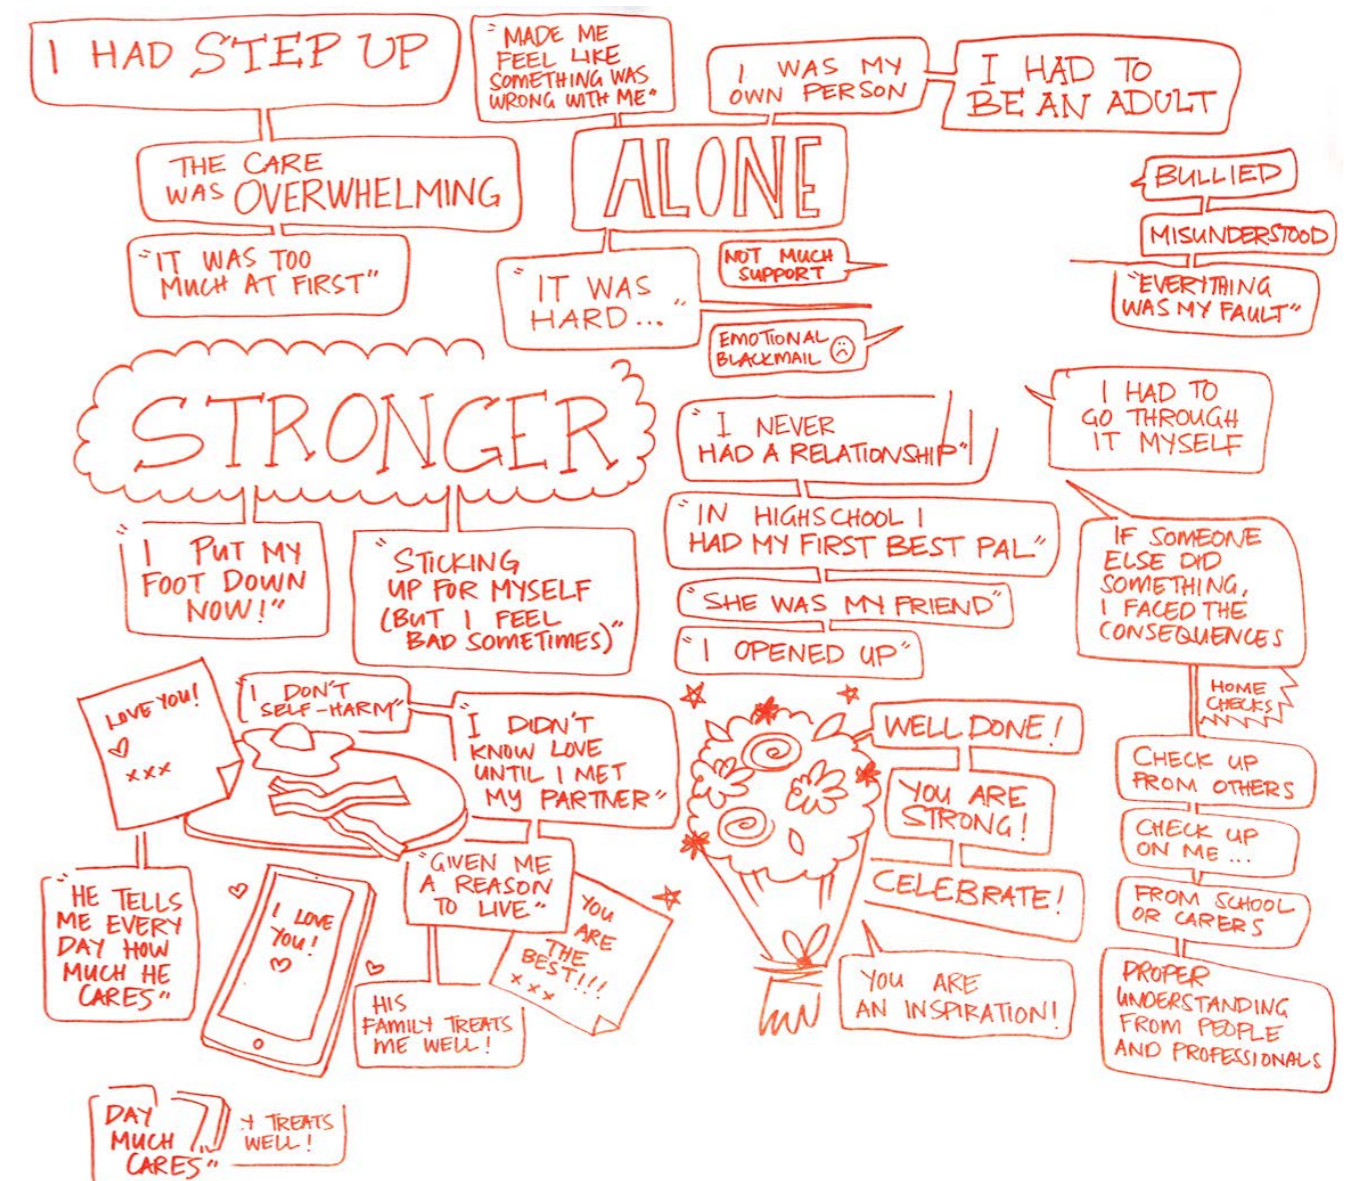 I HAD STEP UP
THE CARE
WAS OVERWHELMING
"IT WAS TOO
MUCH AT FIRST"
"MADE ME
FEEL LIKE
SOMETHING WAS
WRONG WITH ME"
I WAS MY
OWN PERSON
I HAD TO
BE AN ADULT
ALONE
"IT WAS
HARD..."
NOT MUCH
SUPPORT
EMOTIONAL
BLACKMAIL
BULLIED
MISUNDERSTOOD
"EVERYTHING
WAS MY FAULT"
STRONGER
"I PUT MY
FOOT DOWN
NOW!"
"STICKING
UP FOR MYSELF
(BUT I FEEL
BAD SOMETIMES)"
"I NEVER
HAD A RELATIONSHIP"
"IN HIGHSCHOOL I
HAD MY FIRST BEST PAL"
"SHE WAS MY FRIEND"
"I OPENED UP"
I HAD TO
GO THROUGH
IT MYSELF
IF SOMEONE
ELSE DID
SOMETHING,
I FACED THE
CONSEQUENCES
HOME
CHECKS
CHECK UP
FROM OTHERS
CHECK UP
ON ME...
FROM SCHOOL
OR CARERS
PROPER
UNDERSTANDING
FROM PEOPLE
AND PROFESSIONALS
LOVE YOU!
xxx
"I DON'T
SELF-HARM"
"I DIDN'T
KNOW LOVE
UNTIL I MET
MY PARTNER"
"GIVEN ME
A REASON
TO LIVE"
"HE TELLS
ME EVERY
DAY HOW
MUCH HE
CARES"
I LOVE
YOU!
HIS
FAMILY TREATS
ME WELL!
YOU
ARE
THE
BEST!!!
xxx
WELL DONE!
YOU ARE
STRONG!
CELEBRATE!
YOU ARE
AN INSPIRATION!
DAY
MUCH
CARES"
Y TREATS
WELL!